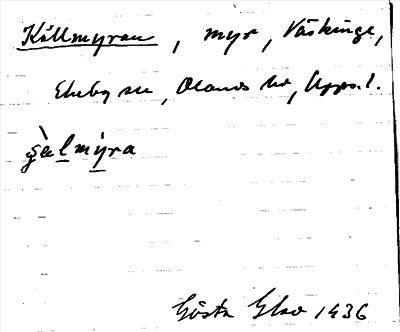 Källmyran, myr, Väskinge,
Ekeby sn, Olands hd, Upps. l.
g̀älmýra
Gösta 1936